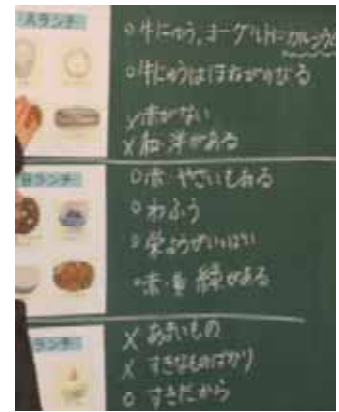 Aランチ
○牛にゅう,ヨーグルト=カルシウム
○牛にゅうはほねがのびる
×赤がない
×和・洋がある
Bランチ
○赤・やさいもある
○わふう
○栄ようがいっぱい
・赤・黄・緑がある
ランチ
×あまいもの
×すきなものばかり
○すきだから